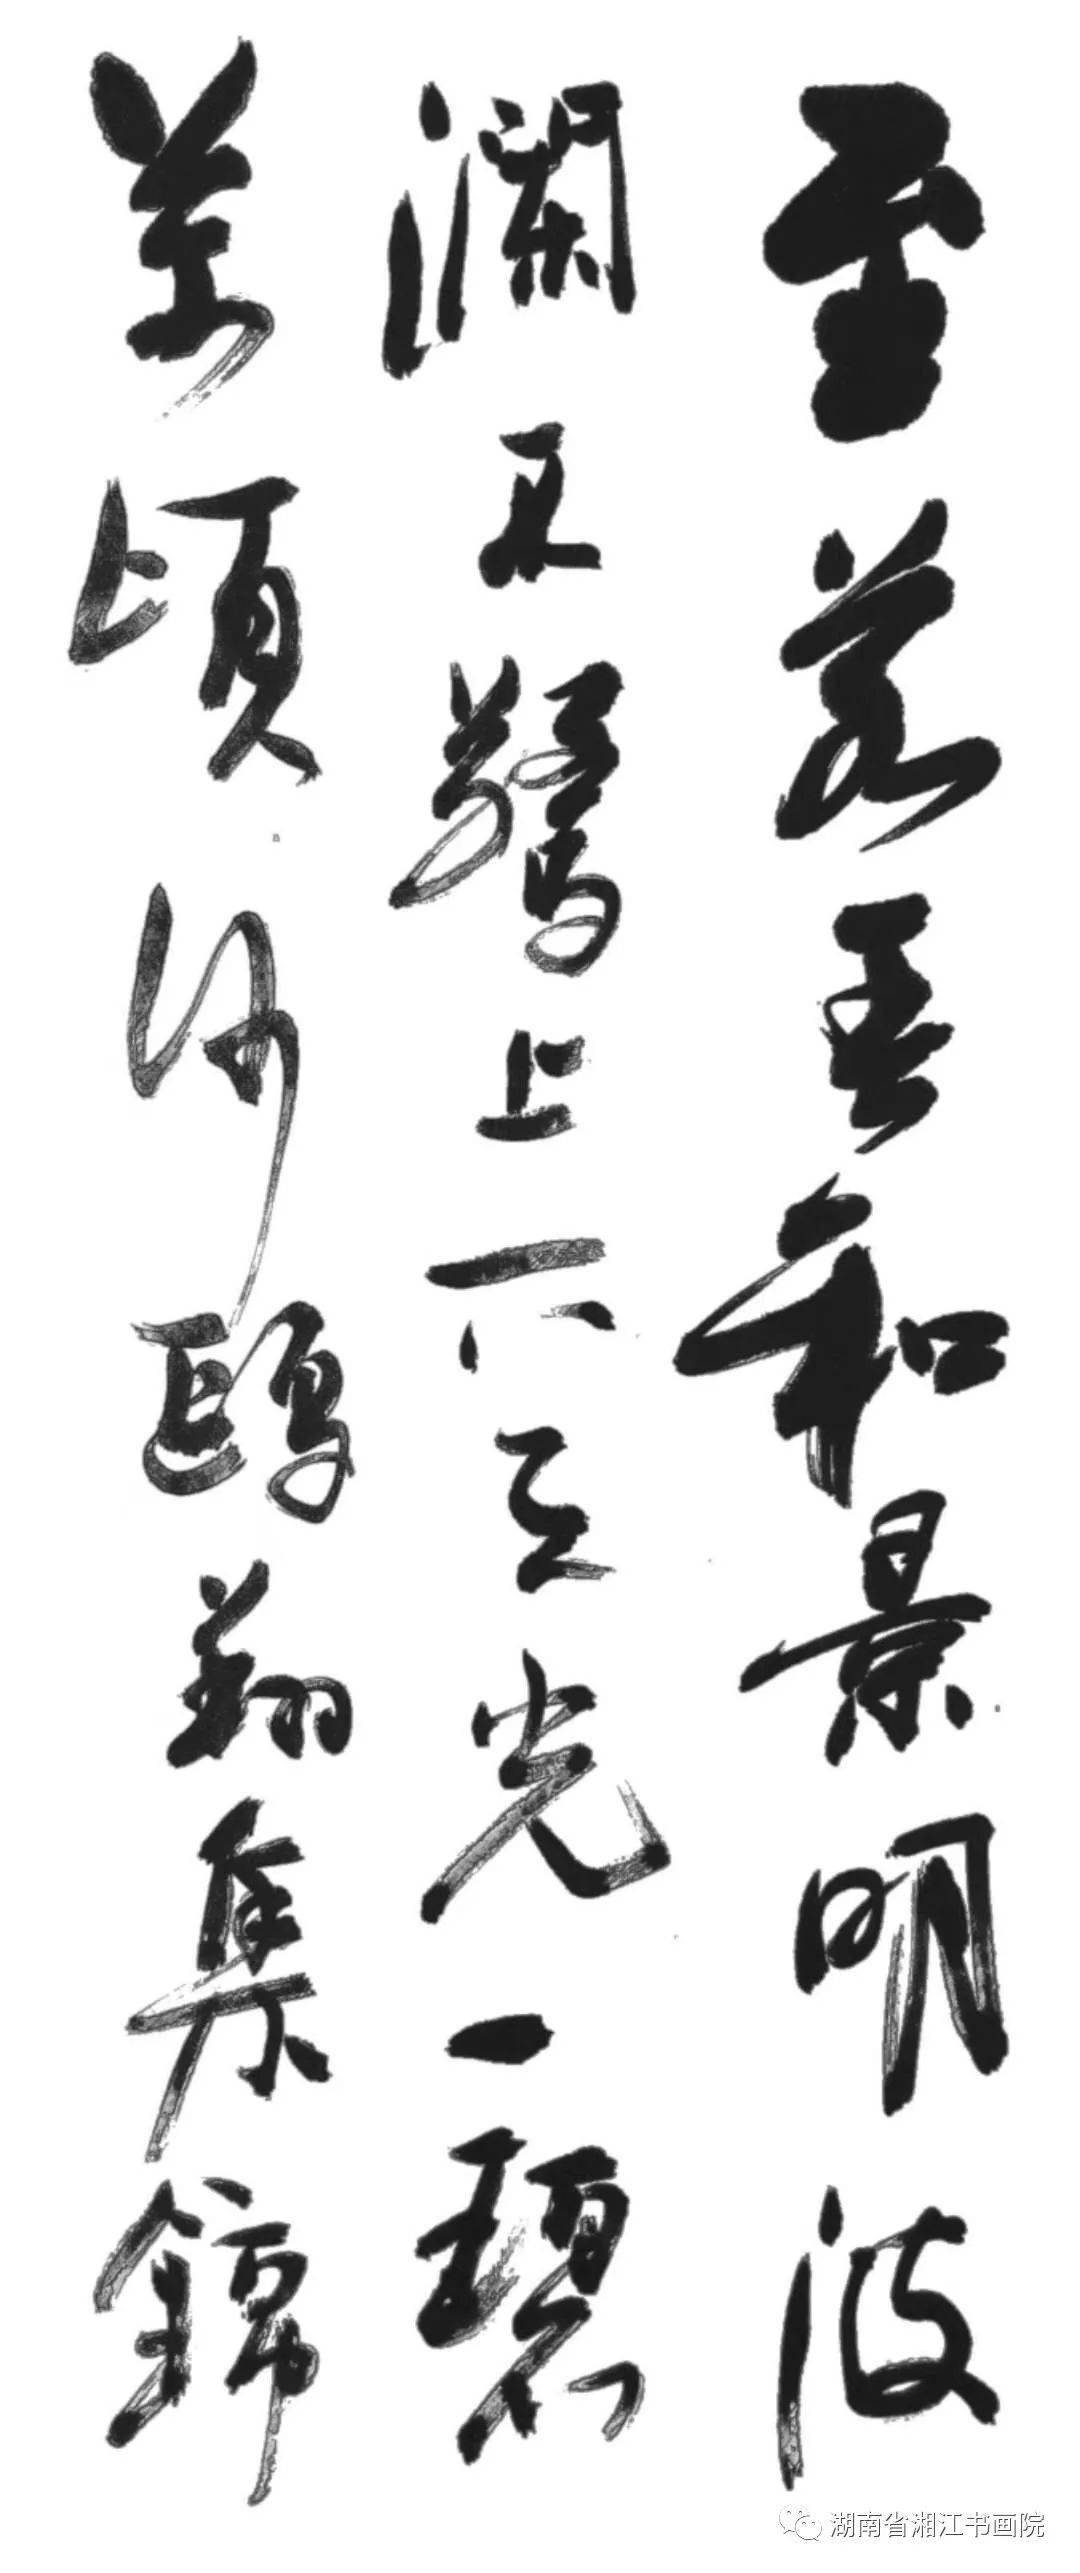 至若春和景明波
瀾不驚上下天光一碧
萬頃沙鷗翔集錦
湖南省湘江书画院